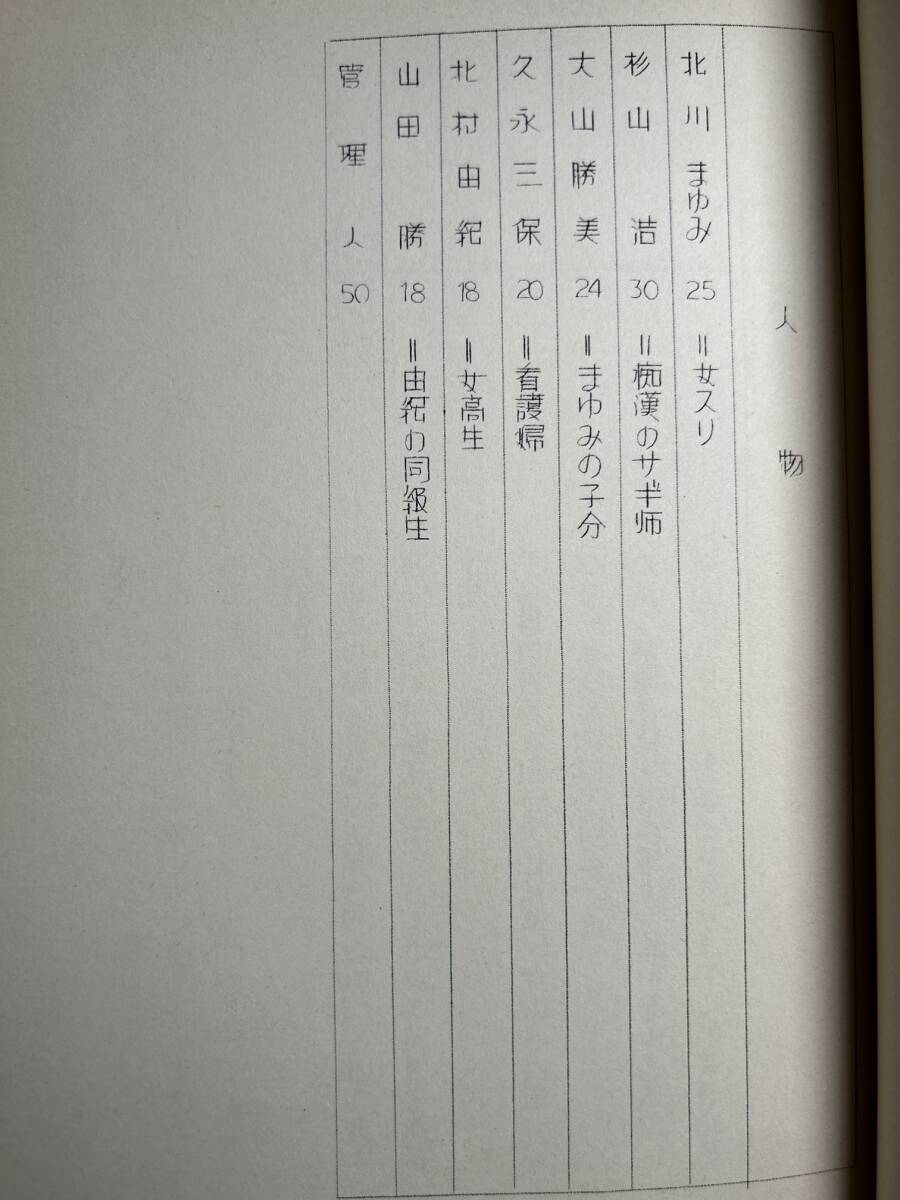 人物
北川まゆみ 25 =女スリ
杉山 浩 30 =痴漢のサギ师
大山勝美 24 =まゆみの子分
久永三保 20 =看護婦
北村由紀 18 =女高生
山田 勝 18 =由紀の同級生
管理人 50